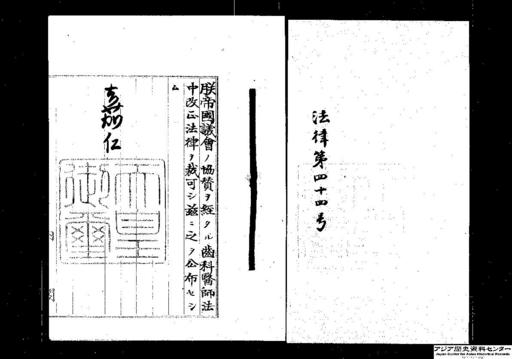 法律第四十四号
朕帝國議會ノ協賛ヲ經タル齒科醫師法
中改正法律ヲ裁可シ茲ニ之ヲ公布セシ
ム
嘉仁
天皇御璽
内閣
アジア歴史資料センター
Japan Center for Asian Historical Records